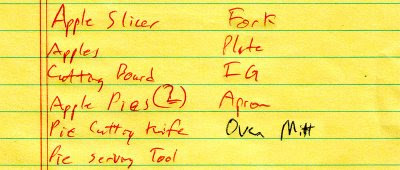 Apple Slicer
Apples
Cutting Board
Apple Pies (2)
Pie Cutting Knife
Pie Serving Tool
Fork
Plate
IG
Apron
Oven Mitt